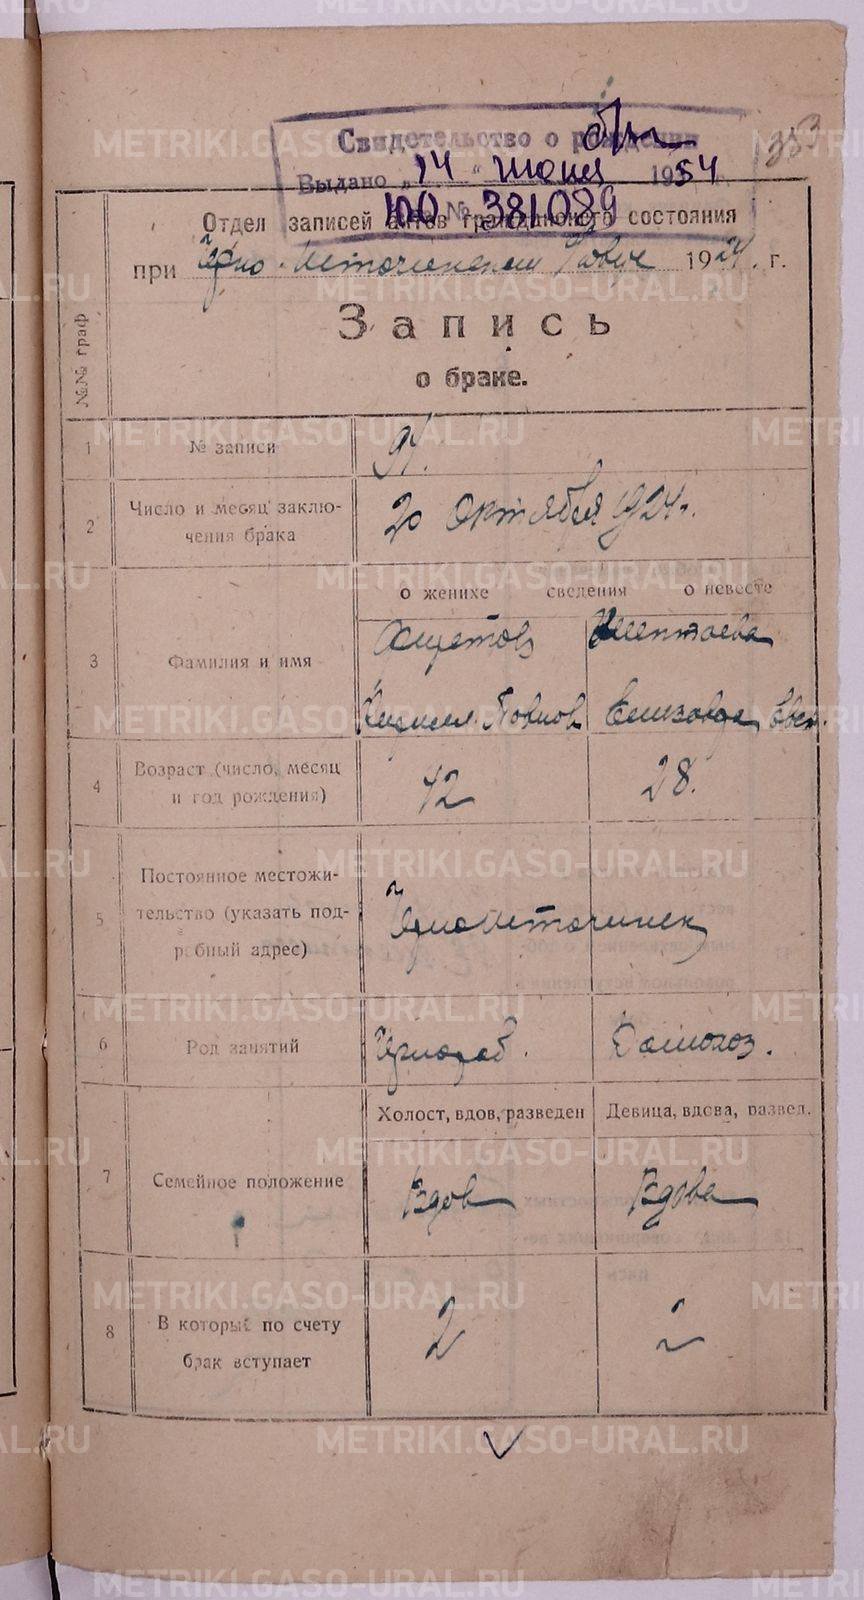 353
Свидетельство о рождении
Выдано „14“ июня 1954
ЮО № 381089
Отдел записей актов гражданского состояния
при Черно-Источинском 1924. г.
Запись
о браке.
№№ граф
1 № записи 91.
2 Число и месяц заклю-
чения брака 20 Октября 1924 г.
о женихе сведения о невесте
3 Фамилия и имя
Павлов Елизавета
4 Возраст (число, месяц
и год рождения) 42 28.
5 Постоянное местожи-
тельство (указать под-
робный адрес) Черноисточинск
6 Род занятий Чернораб. Домохоз.
Холост, вдов, разведен Девица, вдова, развед.
7 Семейное положение Вдов Вдова
8 В который по счету
брак вступает 2 2
METRIKI.GASO-URAL.RU